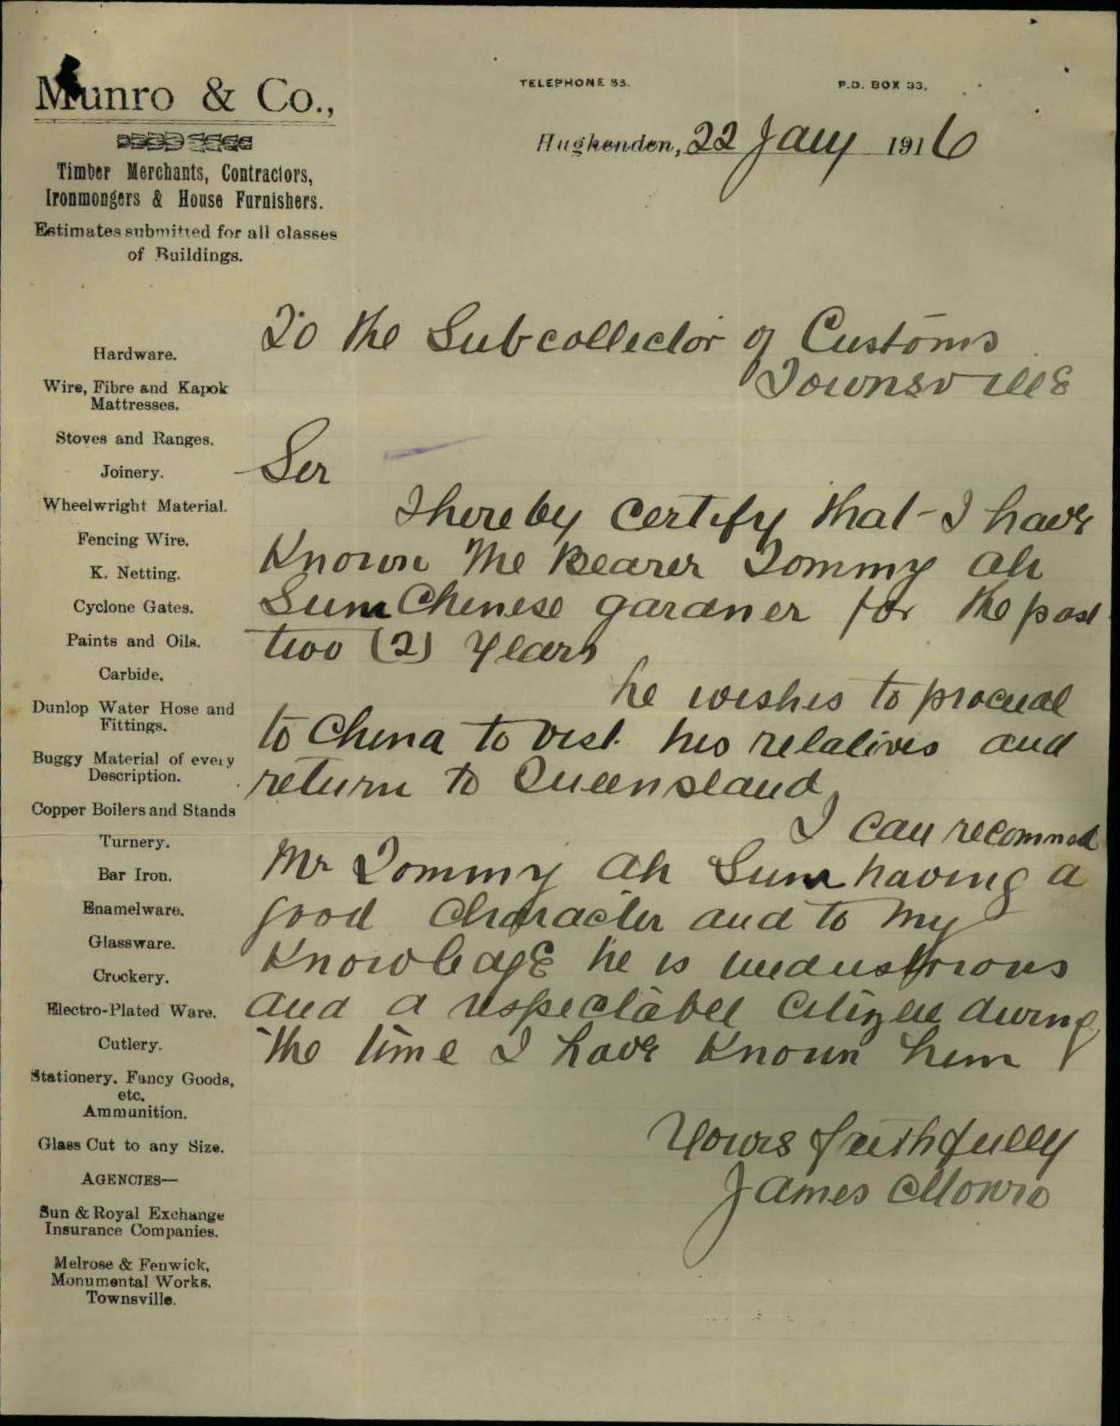 Munro & Co.,
Timber Merchants, Contractors,
Ironmongers & House Furnishers.
Estimates submitted for all classes
of Buildings.
TELEPHONE 33.
P.O. BOX 33.
Hughenden, 22 Jany 1916
Hardware.
Wire, Fibre and Kapok
Mattresses.
Stoves and Ranges.
Joinery.
Wheelwright Material.
Fencing Wire.
K. Netting.
Cyclone Gates.
Paints and Oils.
Carbide.
Dunlop Water Hose and
Fittings.
Buggy Material of every
Description.
Copper Boilers and Stands
Turnery.
Bar Iron.
Enamelware.
Glassware.
Crockery.
Electro-Plated Ware.
Cutlery.
Stationery. Fancy Goods,
etc.
Ammunition.
Glass Cut to any Size.
AGENCIES—
Sun & Royal Exchange
Insurance Companies.
Melrose & Fenwick,
Monumental Works.
Townsville.
To the Subcollector of Customs
Townsville
Sir
I hereby certify that - I have
Known the Bearer Tommy Ah
Sum Chinese gardner for the past
two (2) Years
he wishes to proceed
to China to visit his relatives and
return to Queensland
I can recommend
Mr Tommy Ah Sum having a
good character and to my
Knowledge he is industrious
and a respectable Citizen during
the time I have Known him
Yours faithfully
James Monro